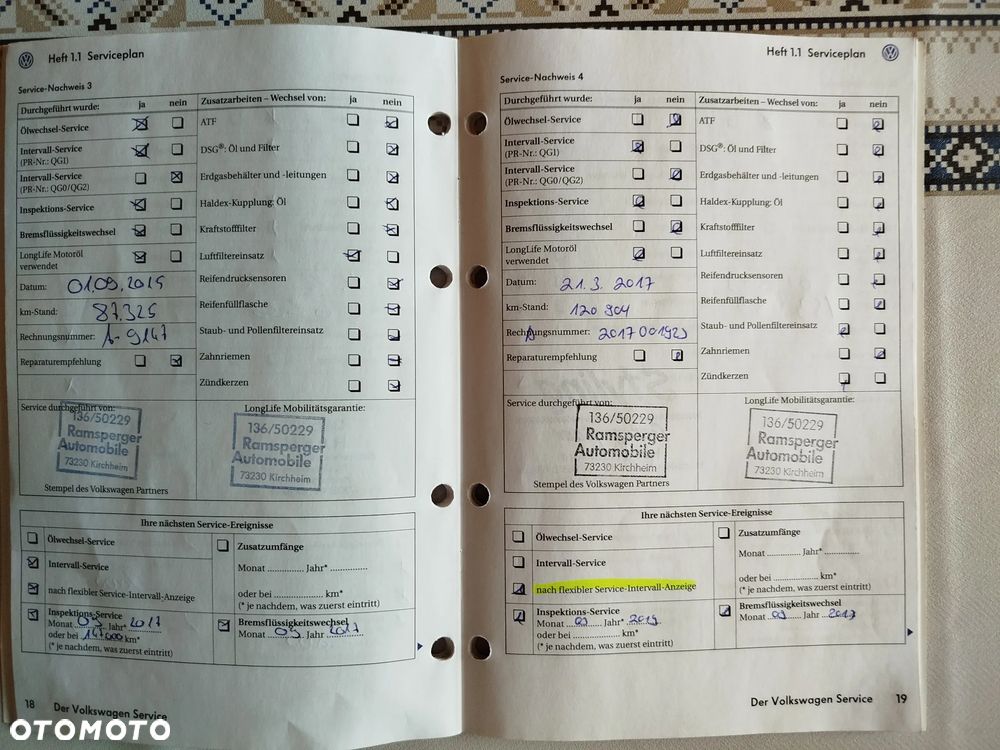 Heft 1.1 Serviceplan
Service-Nachweis 3
Durchgeführt wurde: ja nein
Zusatzarbeiten – Wechsel von: ja nein
Ölwechsel-Service
ATF
Intervall-Service
(PR-Nr.: QG1)
DSG®: Öl und Filter
Intervall-Service
(PR-Nr.: QG0/QG2)
Erdgasbehälter und -leitungen
Inspektions-Service
Haldex-Kupplung: Öl
Bremsflüssigkeitswechsel
Kraftstofffilter
LongLife Motoröl
verwendet
Luftfiltereinsatz
Datum: 01.09.2015
Reifendrucksensoren
km-Stand: 87.325
Reifenfüllflasche
Rechnungsnummer: A-9147
Staub- und Pollenfiltereinsatz
Reparaturempfehlung
Zahnriemen
Zündkerzen
Service durchgeführt von:
LongLife Mobilitätsgarantie:
136/50229
Ramsperger
Automobile
73230 Kirchheim
136/50229
Ramsperger
Automobile
73230 Kirchheim
Stempel des Volkswagen Partners
Ihre nächsten Service-Ereignisse
Ölwechsel-Service
Zusatzumfänge
Intervall-Service
Monat .............. Jahr* ..............
nach flexibler Service-Intervall-Anzeige
oder bei .................. km*
(* je nachdem, was zuerst eintritt)
Inspektions-Service
Monat 09 Jahr* 2017
oder bei 147.000 km*
(* je nachdem, was zuerst eintritt)
Bremsflüssigkeitswechsel
Monat 09 Jahr 2017
18 Der Volkswagen Service
Heft 1.1 Serviceplan
Service-Nachweis 4
Durchgeführt wurde: ja nein
Zusatzarbeiten – Wechsel von: ja nein
Ölwechsel-Service
ATF
Intervall-Service
(PR-Nr.: QG1)
DSG®: Öl und Filter
Intervall-Service
(PR-Nr.: QG0/QG2)
Erdgasbehälter und -leitungen
Inspektions-Service
Haldex-Kupplung: Öl
Bremsflüssigkeitswechsel
Kraftstofffilter
LongLife Motoröl
verwendet
Luftfiltereinsatz
Datum: 21.3.2017
Reifendrucksensoren
km-Stand: 120 904
Reifenfüllflasche
Rechnungsnummer:
Staub- und Pollenfiltereinsatz
Reparaturempfehlung
Zahnriemen
Zündkerzen
Service durchgeführt von:
LongLife Mobilitätsgarantie:
136/50229
Ramsperger
Automobile
73230 Kirchheim
136/50229
Ramsperger
Automobile
73230 Kirchheim
Stempel des Volkswagen Partners
Ihre nächsten Service-Ereignisse
Ölwechsel-Service
Zusatzumfänge
Intervall-Service
Monat .............. Jahr* ..............
nach flexibler Service-Intervall-Anzeige
oder bei .................. km*
(* je nachdem, was zuerst eintritt)
Inspektions-Service
Monat 03 Jahr* 2019
oder bei .................. km*
(* je nachdem, was zuerst eintritt)
Bremsflüssigkeitswechsel
Monat 09 Jahr 2017
Der Volkswagen Service 19
OTOMOTO